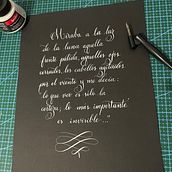 "Miraba a la luz
de la luna aquella
frente pálida, aquellos ojos
cerrados, los cabellos agitados
por el viento y me decía:
lo que veo es sólo la
corteza; lo más importante
es invisible..."